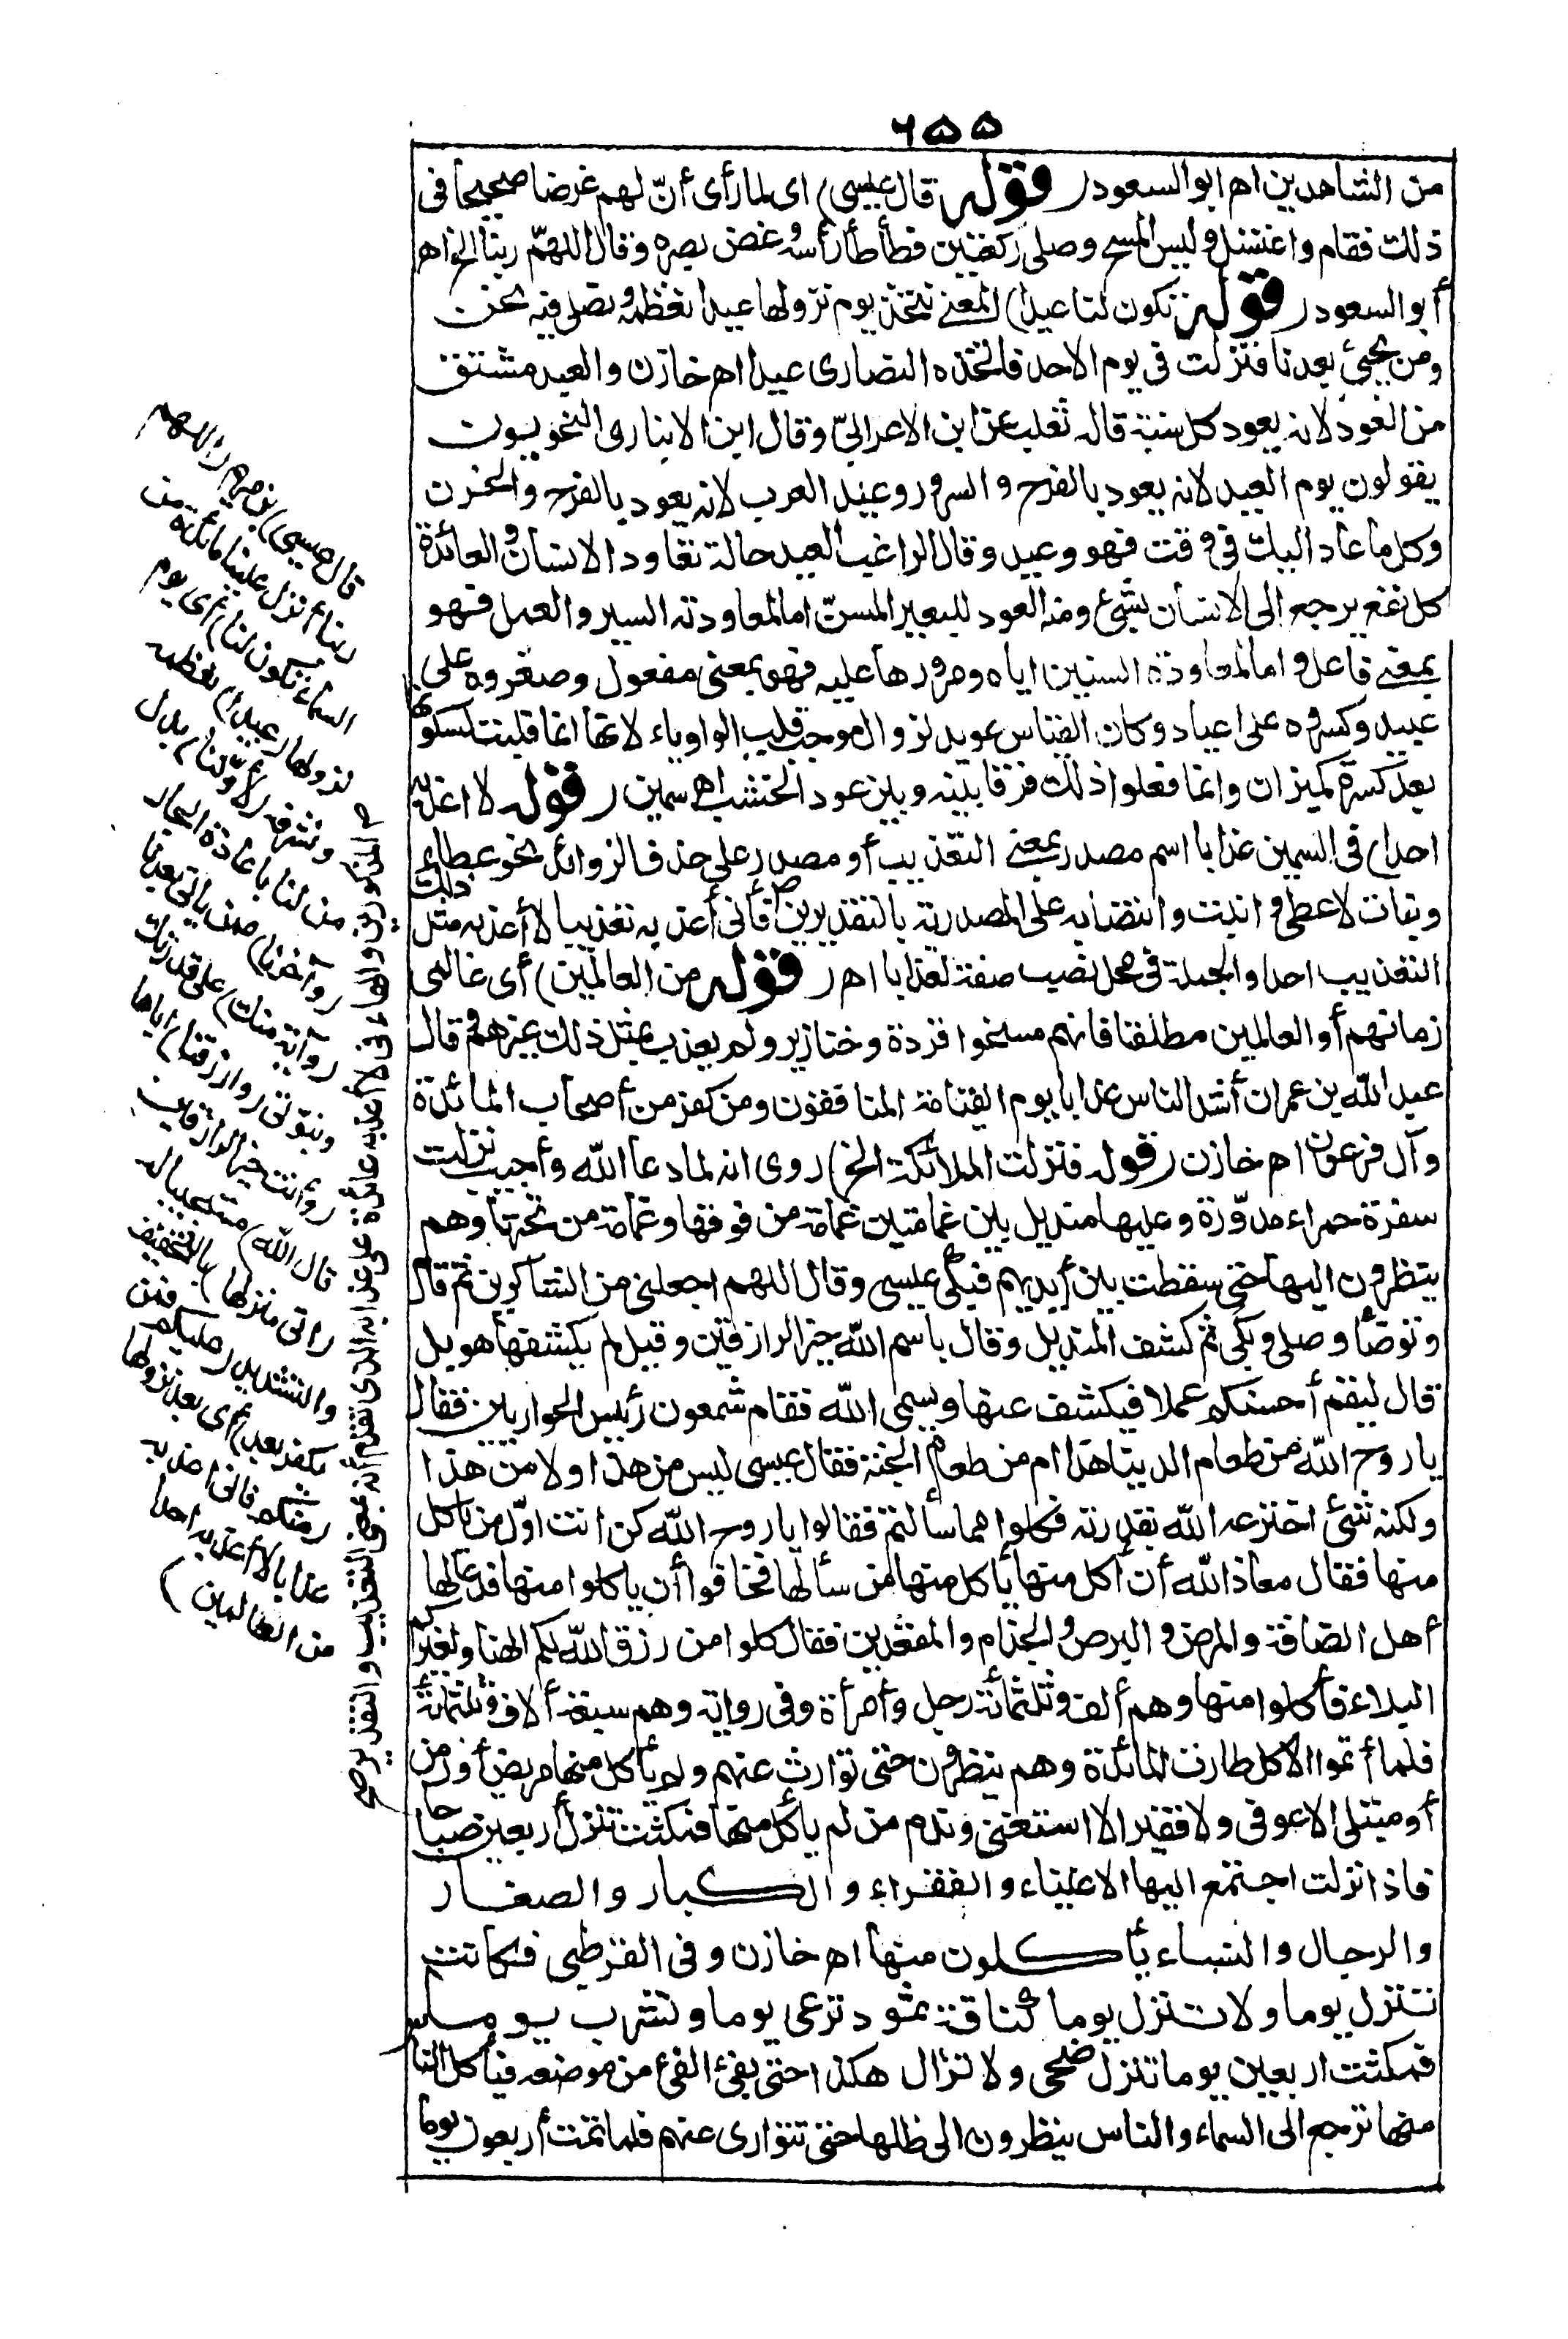 ٦٥٥
من الشاهدين اه ابو السعود (قوله قال عيسى) اى لما رأى أنّ لهم غرضا صحيحا فى
ذلك فقام واغتسل ولبس المسح وصلى ركعتين فطأطأ رأسه وغض بصره وقال اللهمّ ربنا الخ اه
أبو السعود (قوله تكون لنا عيدا) المعنى نتخذ يوم نزولها عيدا نعظمه ونصلى فيه نحن
ومن يجئ بعدنا فنزلت فى يوم الاحد فاتخذه النصارى عيدا اه خازن والعيد مشتق
من العود لانه يعود كل سنة قاله ثعلب عن ابن الاعرابىّ وقال ابن الانبارى النحويون
يقولون يوم العيد لانه يعود بالفرح والسرور وعيد العرب لانه يعود بالفرح والحزن
وكل ما عاد اليك فى وقت فهو عيد وقال الراغب العيد حالة تعاود الانسان والعائدة
كل نفع يرجع الى الانسان بشئ ومنه العود للبعير المسنّ اما لمعاودته السير والعمل فهو
بمعنى فاعل واما لمعاودة السنين اياه ومرورها عليه فهو بمعنى مفعول وصغروه على
عييد وكسروه على اعياد وكان القياس عويد لزوال موجب قلب الواو ياء لانها انما قلبت لسكونها
بعد كسرة كميزان وانما فعلوا ذلك فرقا بينه وبين عود الخشب اه سمين (قوله لا اعذبه
احدا) فى السمين عذابا اسم مصدر بمعنى التعذيب أو مصدر على حذف الزوائد نحو عطاء
ونبات لاعطى وانبت وانتصابه على المصدرية بالتقديرين فأنى أعذبه تعذيبا لا أعذبه مثل ذلك
التعذيب احدا والجملة فى محل نصب صفة لعذابا اه (قوله من العالمين) أى عالمى
زمانهم أو العالمين مطلقا فانهم مسخوا قردة وخنازير ولم يعذب بمثل ذلك غيرهم قال
عبد الله بن عمران أشد الناس عذابا يوم القيامة المنافقون ومن كفر من أصحاب المائدة
وآل فرعون اه خازن (قوله فنزلت الملائكة الخ) روى انه لما دعا الله وأجيب نزلت
سفرة حمراء مدوّرة وعليها منديل بين غمامتين غمامة من فوقها وغمامة من تحتها وهم
ينظرون اليها حتى سقطت بين أيديهم فبكى عيسى وقال اللهم اجعلنى من الشاكرين ثم قام
وتوضأ وصلى وبكى ثم كشف المنديل وقال باسم الله خير الرازقين وقيل لم يكشفها هو بل
قال ليقم أحسنكم عملا فيكشف عنها ويسمى الله فقام شمعون رئيس الحواريين فقال
يا روح الله من طعام الدنيا هذا ام من طعام الجنة فقال عيسى ليس من هذا ولا من هذا
ولكنه شئ اخترعه الله بقدرته فكلوا مما سألتم فقالوا يا روح الله كن انت اوّل من يأكل
منها فقال معاذ الله أن آكل منها يأكل منها من سألها فخافوا أن يأكلوا منها فدعا لها
أهل الفاقة والمرض والبرص والجذام والمقعدين فقال كلوا من رزق الله لكم الهنا ولغيركم
البلاء فأكلوا منها وهم ألف وثلثمائة رجل وأمرأة وفى رواية وهم سبعة ألاف وثلثمائة
فلما أتموا الاكل طارت المائدة وهم ينظرون حتى توارت عنهم ولم يأكل منها مريض أو زمن
أو مبتلى الا عوفى ولا فقير الا استغنى وندم من لم يأكل منها فمكثت تنزل أربعين صباحا
فاذا نزلت اجتمع اليها الاغنياء والفقراء والكبار والصغار
والرجال والنساء يأكلون منها اه خازن وفى القرطبى فكانت
تنزل يوما ولا تنزل يوما كناقة ثمود ترعى يوما وتشرب يوما
فمكثت اربعين يوما تنزل ضحى ولا تزال هكذا حتى يفئ الفئ من موضعه فيأكل الناس
منها ثم ترجع الى السماء والناس ينظرون الى ظلها حتى تتوارى عنهم فلما تمت أربعون يوما
قال عيسى) بن مريم (اللهم
ربنا أنزل علينا مائدة من
السماء تكون لنا) أى يوم
نزولها (عيدا) نعظمه
ونشرفه (لأوّلنا) بدل
من لنا باعادة الجار
(وآخرنا) ممن يأتى بعدنا
(وآية منك) على قدرتك
ونبوّتى (وارزقنا) اياها
(وأنت خير الرازقين
قال الله) مستجيبا له
(انى منزلها) بالتخفيف
والتشديد (عليكم فمن
يكفر بعد) أى بعد نزولها
(منكم فانى أعذبه
عذابا لا أعذبه احدا
من العالمين)
المذكورين والهاء فى لا أعذبه عائدة على عذابه الذى تقدم أنه بمعنى التعذيب والتقدير